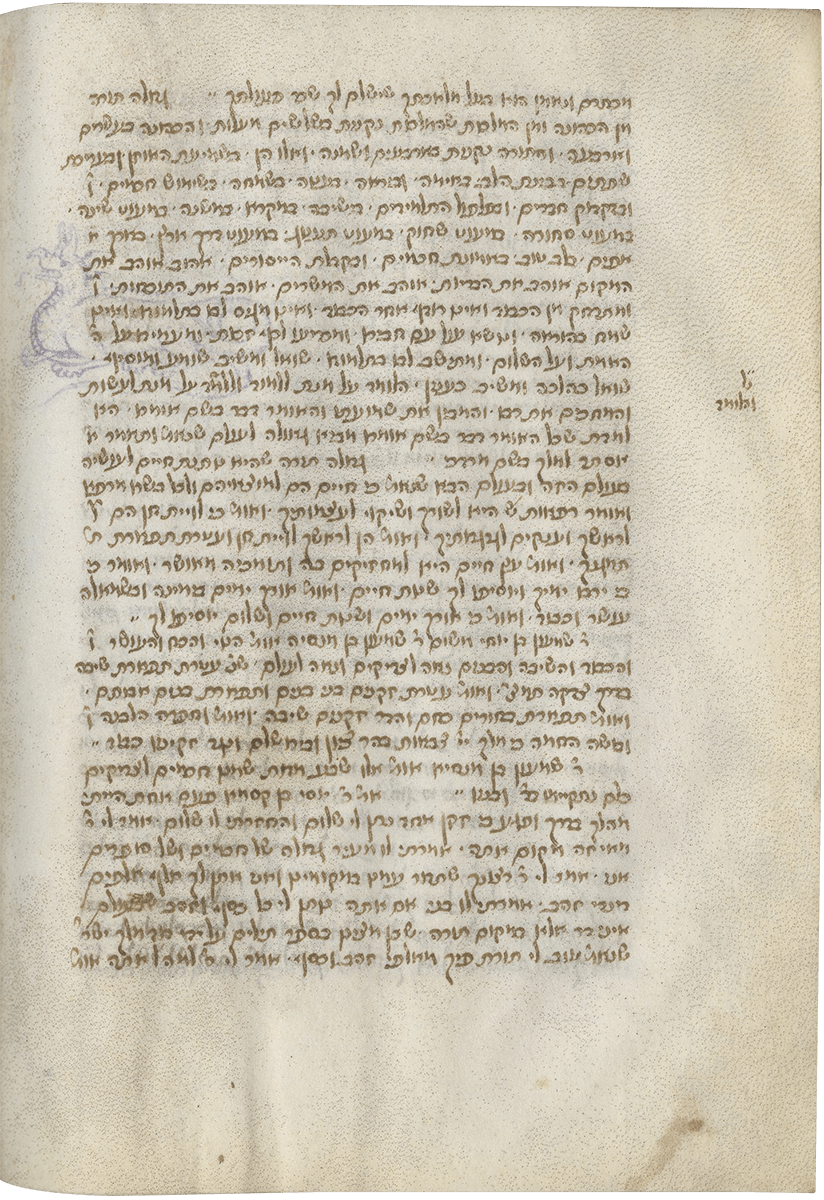 מכתרם ונאמן הוא בעל מלאכתך שישלם לך שכר פעולתך ״ גדולה תורה
מן הכהונה ומן המלכות שהמלכות נקנת בשלשים מעלות והכהונה בעשרים
וארבעה · והתורה נקנת בארבעים ושמנה · ואלו הן · בשמיעת האוזן ובעריכת
שפתים · בבינת הלב · באימה · וביראה · בענוה · בשמחה · בשימוש חכמים · ו
ובדקדוק חברים · ובפלפול התלמידים · בישיבה · במקרא · במשנה · במעוט שינה ·
במעוט סחורה · במעוט שחוק · במעוט תענוג · במעוט דרך ארץ · בארך א
אפים · בלב טוב · באמונת חכמים · ובקבלת הייסורים · אהוב אוהב את
המקום אוהב את הבריות · אוהב את המשרים · אוהב את התוכחות · ו
ומתרחק מן הכבוד ואינו רודף אחר הכבוד · ואינו מגיס לבו בתלמודו ואינו
שמח בהוראה · ונושא עול עם חבירו · ומכריעו לכף זכות · ומעמידו על ה
האמת ועל השלום · ומתישב לבו בתלמודו · שואל ומשיב שומע ומוסיף ·
שואל כהלכה ומשיב כענין · הלומד על מנת ללמוד וללמד על מנת לעשות
והמחכים את רבו · והמכוין את שמועתו והאומר דבר בשם אומרו · הא
למדת שכל האומר דבר בשם אומרו מביא גאולה לעולם שנאמ׳ ותאמר א׳
אסתר למלך בשם מרדכי ״ גדולה תורה שהיא נותנת חיים לעושיה
בעולם הזה ובעולם הבא שנאמ׳ כי חיים הם למוצאיהם ולכל בשרו מרפא
ואומר רפאות תהי לשרך ושיקוי לעצמותיך · ואומ׳ כי לוית חן הם
לראשך וענקים לגרגרותיך · ואומ׳ תתן לראשך לוית חן ועטרת תפארת ת׳
תמגנך · ואומ׳ עץ חיים היא למחזיקים בה ותומכיה מאושר · ואומר כי
כי ירבו ימיך ויוסיפו לך שנות חיים · ואומ׳ אורך ימים בימינה ובשמאולה
עושר וכבוד · ואומ׳ כי אורך ימים ושנות חיים ושלום יוסיפו לך ״
ר׳ שמעון בן יוחי משום ר׳ שמעון בן מנסיה אומ׳ הנוי והכח והעושר ו
והכבוד והשיבה והבנים נאה לצדיקים ונאה לעולם · שנ׳ עטרת תפארת שיבה
בדרך צדקה תמצ׳ · ואומ׳ עטרת זקנים בני בנים ותפארת בנים אבותם ·
ואומ׳ תפארת בחורים כחם והדר זקנים שיבה · ואומ׳ וחפרה הלבנה ו
ובושה החמה כי מלך יי׳ צבאות בהר ציון ובירושלם ונגד זקיניו כבוד ״
ר׳ שמעון בן מנסיא אומ׳ אלו שבע מדות שמנו חכמים לצדיקים
כולם נתקיימו בר׳ ובבניו ״ אמ׳ ר׳ יוסי בן קסמא פעם אחת הייתי
מהלך בדרך ופגע בי זקן אחד נתן לי שלום והחזרתי לו שלום · אמר לי ר׳
מאי זה מקום אתה · אמרתי לו מעיר גדולה של חכמים ושל סופרים
אני · אמר לי ר׳ רצונך שתדור עמנו במקומינו ואני אתן לך אלף אלפים
דינרי זהב · אמרתי לו בני אם אתה נותן לי כל כסף וזהב שבעולם
איני דר אלא במקום תורה · שכן מצינו בספר תילים על ידי דוד מלך ישר׳
שנאמ׳ טוב לי תורת פיך מאלפי זהב וכסף · אמר לי
והלומד